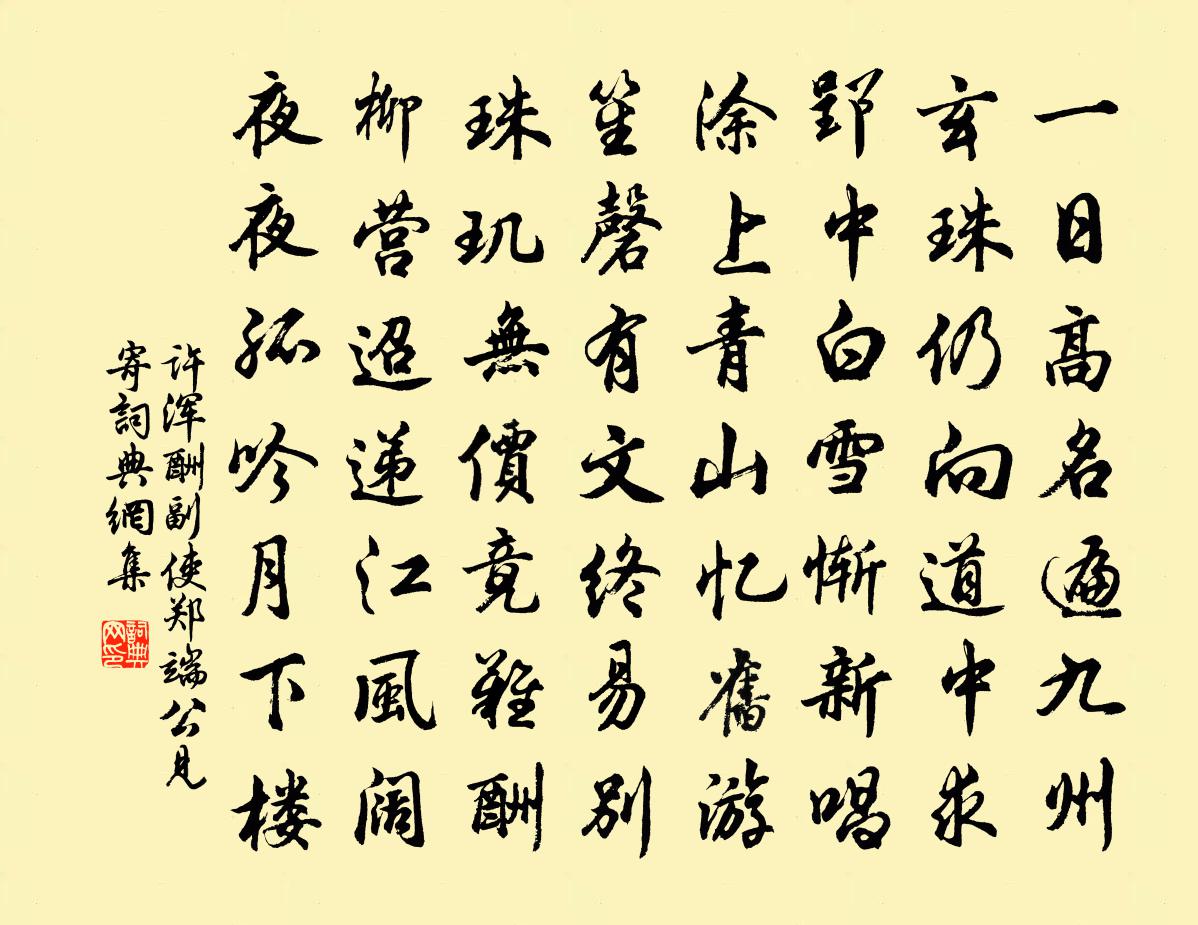 一日高名遍九州
玄珠仍向道中求
郢中白雪慚新唱
涂上青山忆舊游
笙磬有文终易别
珠玑無價竟難酬
柳营迢递江風阔
夜夜孤吟月下楼
许渾酬副使郑端公見
寄詞典網集
詞典
网印